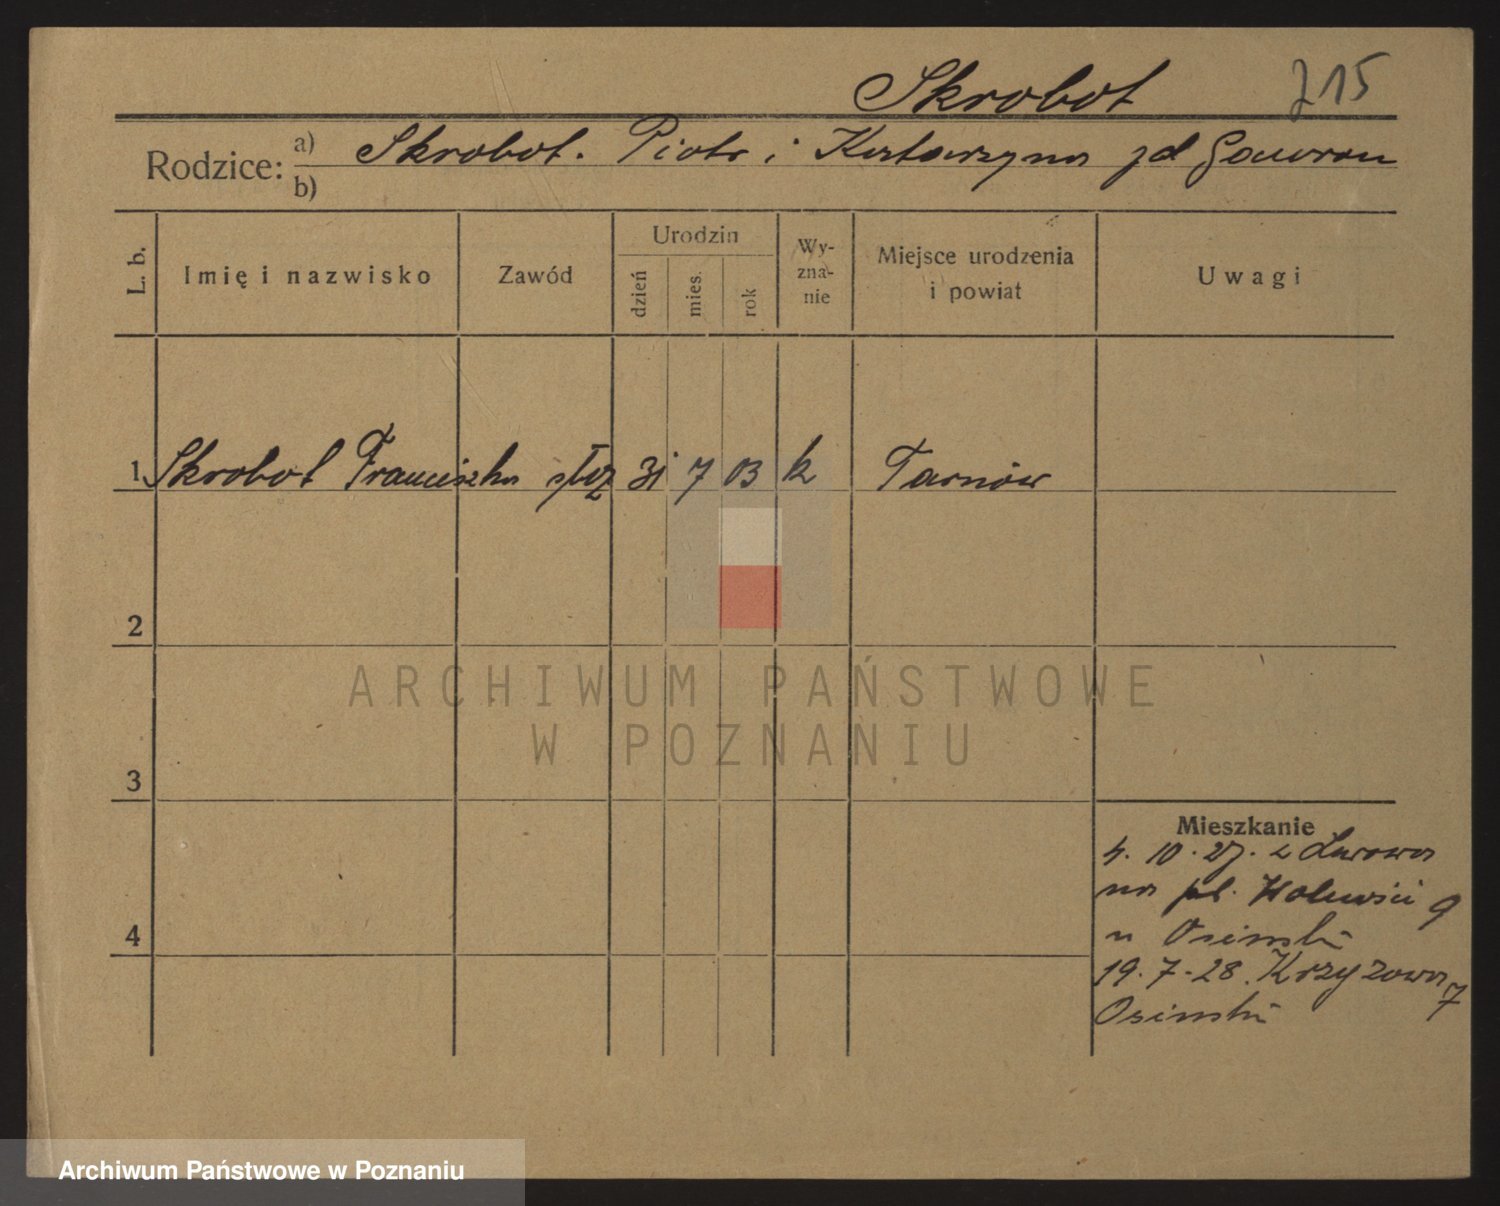 Skrobot 215
Rodzice: a) Skrobot. Piotr i Katarzyna zd Gawron
b)
L. b. Imię i nazwisko Zawód Urodzin dzień mies. rok Wy-zna-nie Miejsce urodzenia i powiat Uwagi
1 Skrobot Franciszka służ 31 7 03 k Tarnów
2
3
4
Mieszkanie
4. 10. 27. z Lwowa
na pl. 9
u Osinski
19. 7 - 28. Krzyzowa 7
Osinski
ARCHIWUM PAŃSTWOWE
W POZNANIU
Archiwum Państwowe w Poznaniu